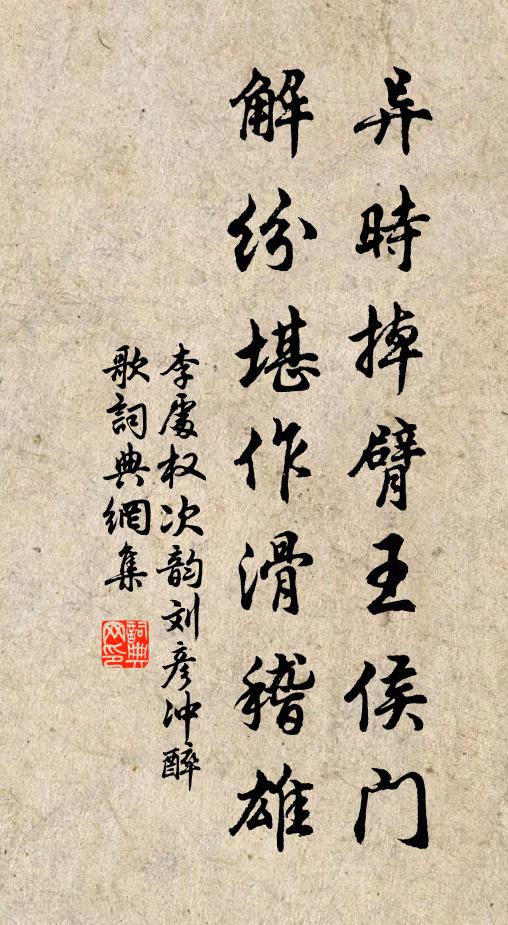 异時掉臂王侯门
解纷堪作滑稽雄
李處权次韵刘彦冲醉
歌詞典網集
詞典网印